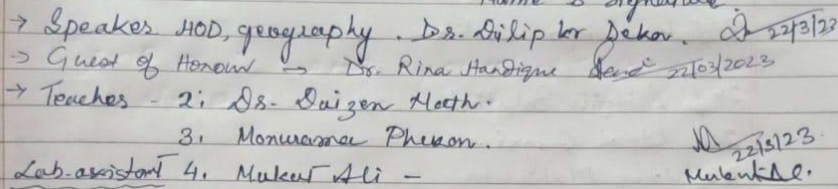 → Speaker HOD, geography. Dr. Dilip kr Deka. 22/3/23
→ Guest of Honour → Dr. Rina Handique 22/03/2023
→ Teaches - 2: Dr. Daizen
3. Monurama Phukon. 22/3/23
Lab-assistant 4. Mukut Ali - Mukut Ali.